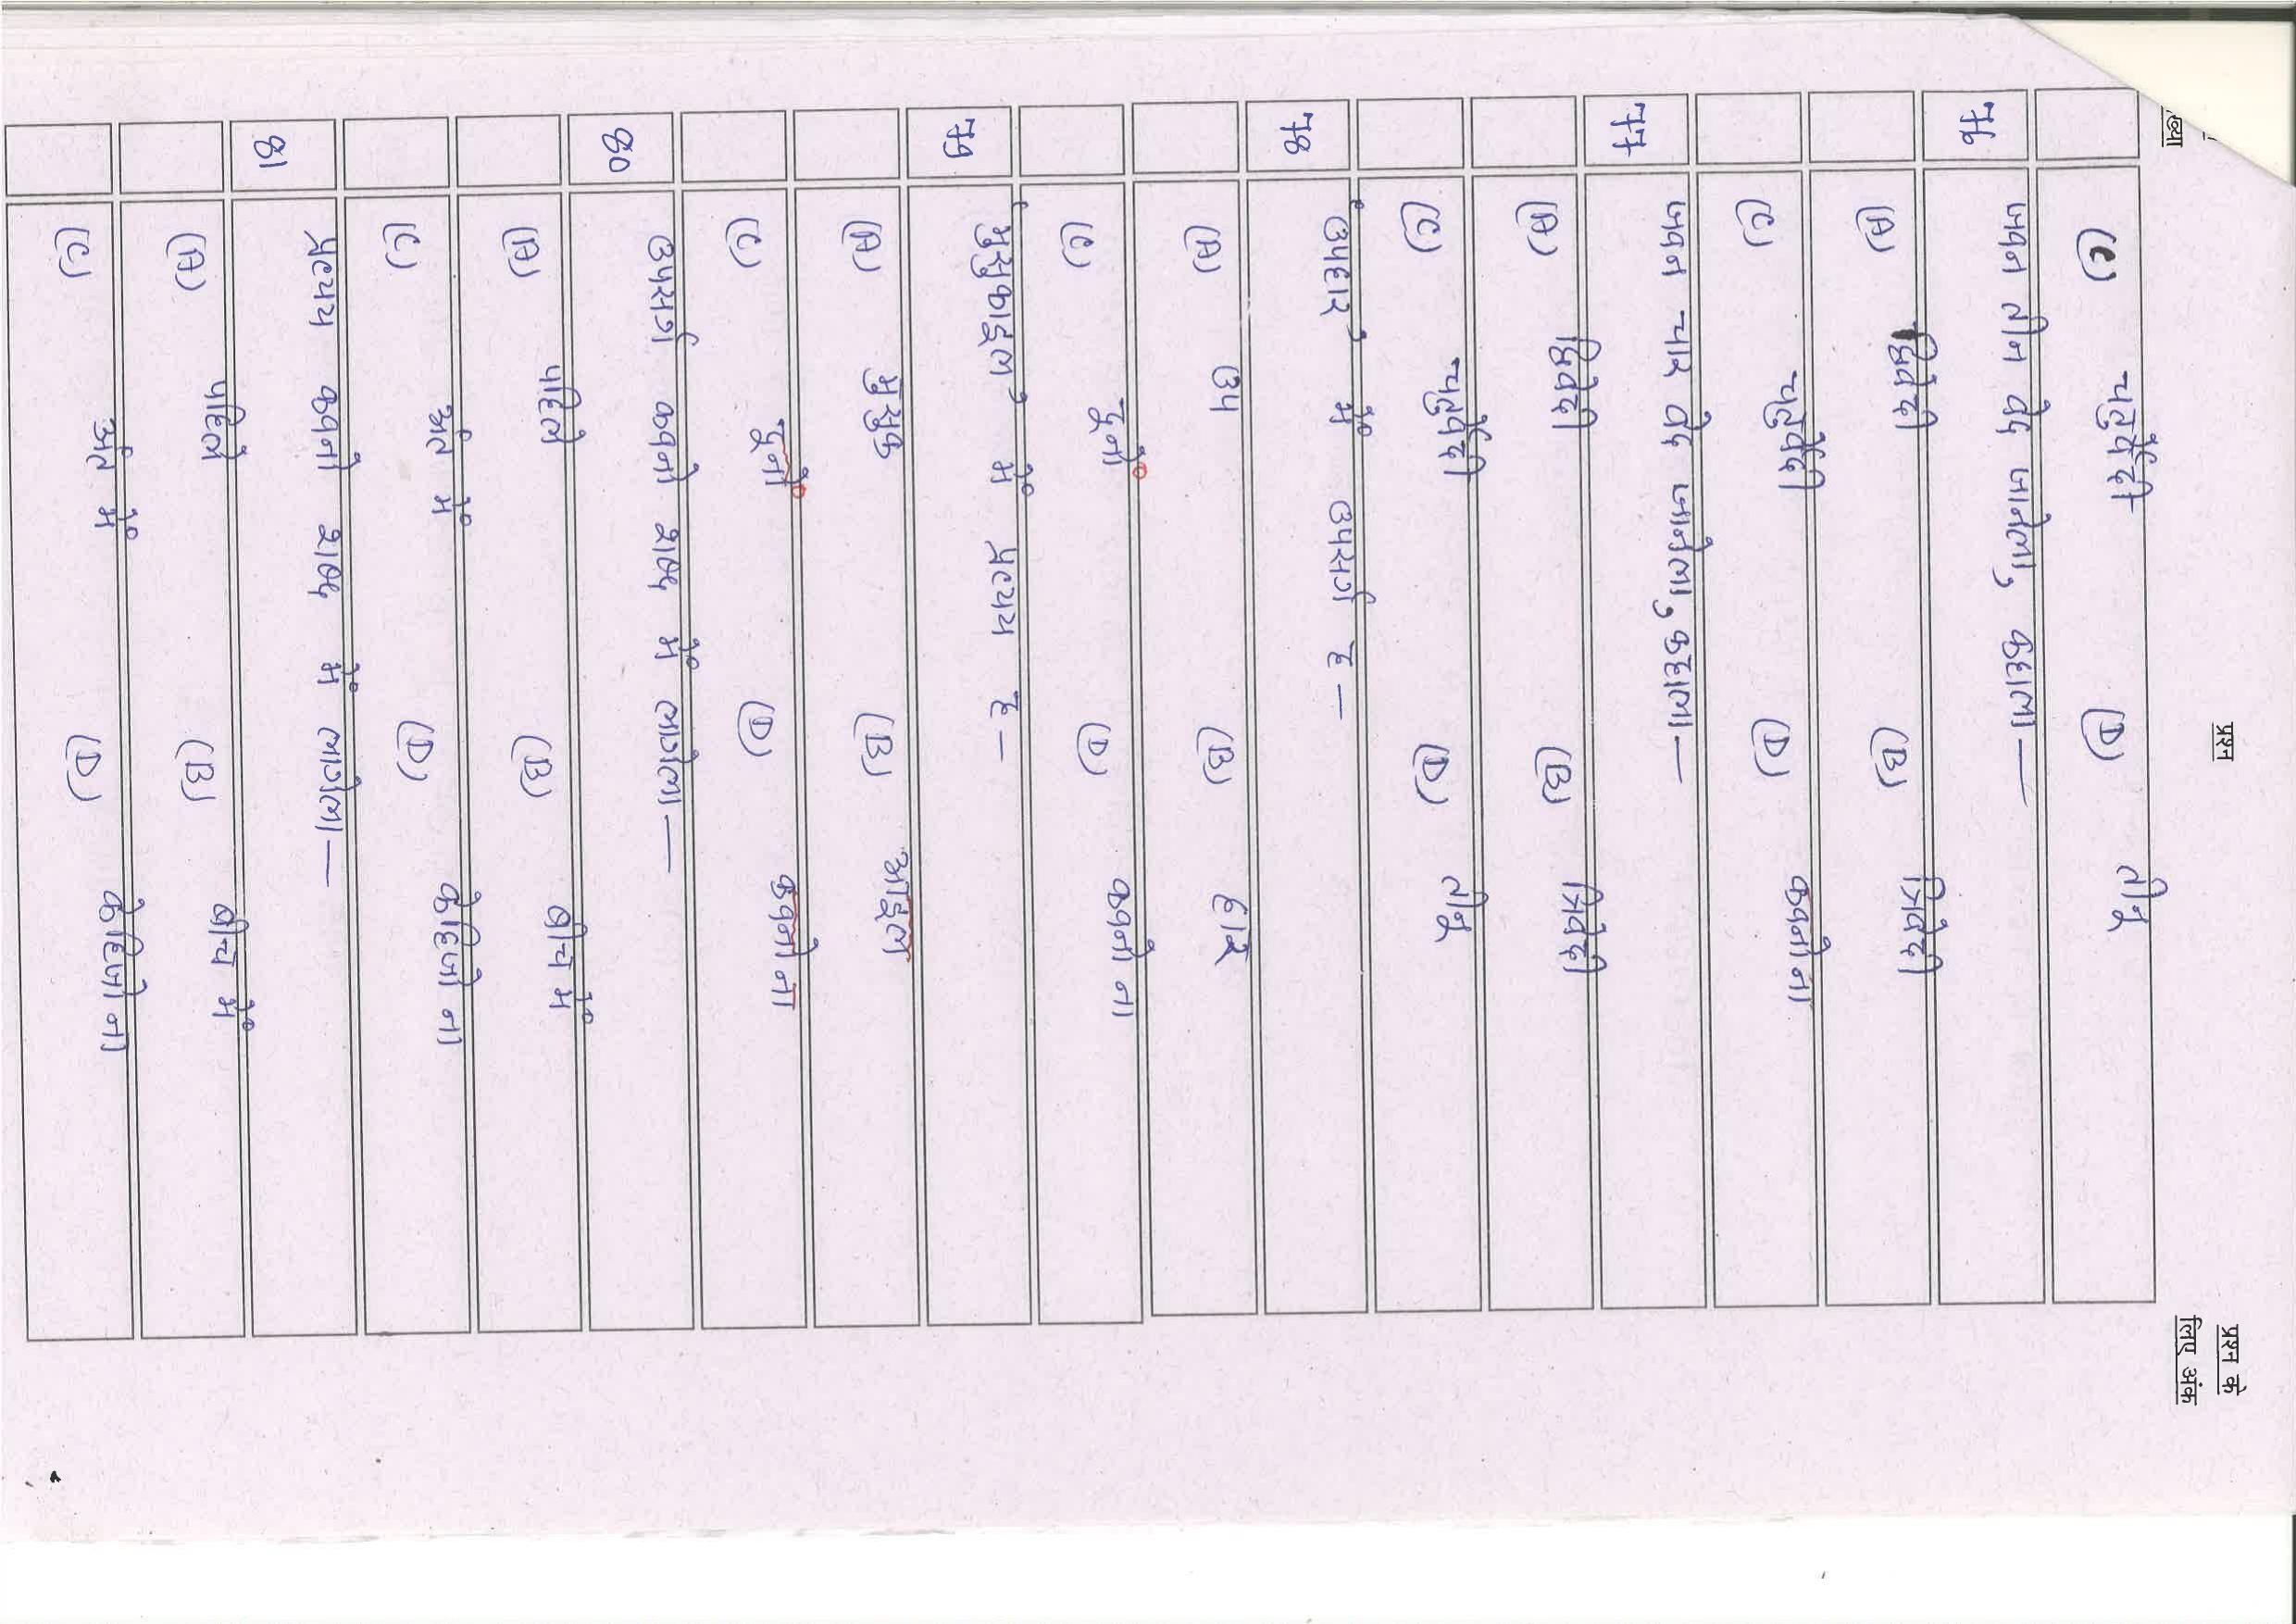 ख्या
प्रश्न
प्रश्न के
लिए अंक
(C) चतुर्वेदी (D) तीनू
76 जवन तीन वेद जानेला, कहाला —
(A) द्विवेदी (B) त्रिवेदी
(C) चतुर्वेदी (D) कवनो ना
77 जवन चार वेद जानेला, कहाला —
(A) द्विवेदी (B) त्रिवेदी
(C) चतुर्वेदी (D) तीनू
78 'उपहार' में उपसर्ग ह —
(A) उप (B) हार
(C) दूनों (D) कवनो ना
79 'मुसुकाइल' में प्रत्यय ह —
(A) मुसुक (B) आइल
(C) दूनों (D) कवनो ना
80 उपसर्ग कवनो शब्द में लागेला —
(A) पहिले (B) बीच में
(C) अंत में (D) केहिजो ना
81 प्रत्यय कवनो शब्द में लागेला —
(A) पहिले (B) बीच में
(C) अंत में (D) केहिजो ना